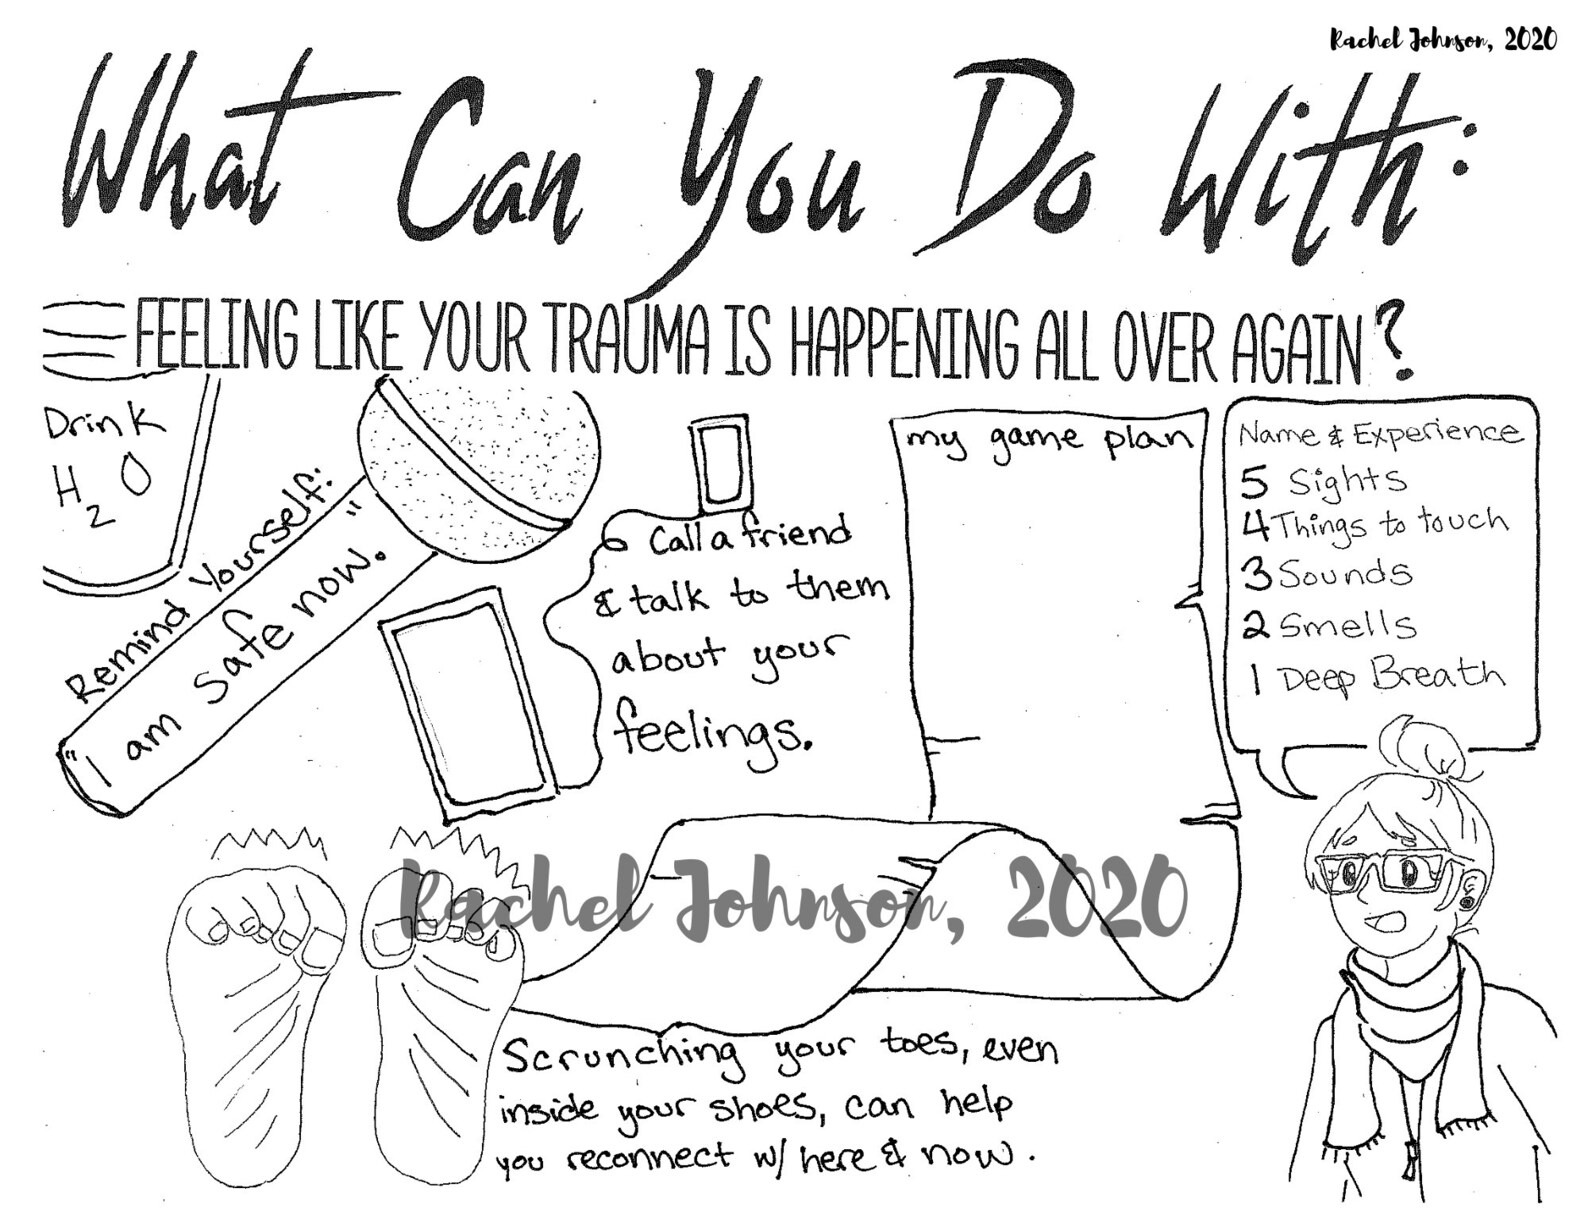 Rachel Johnson, 2020
What Can You Do With:
FEELING LIKE YOUR TRAUMA IS HAPPENING ALL OVER AGAIN?
Drink
H2O
Remind Yourself:
"I am safe now."
Call a friend
& talk to them
about your
feelings.
my game plan
Name & Experience
5 Sights
4 Things to touch
3 Sounds
2 Smells
1 Deep Breath
Rachel Johnson, 2020
Scrunching your toes, even
inside your shoes, can help
you reconnect w/ here & now.